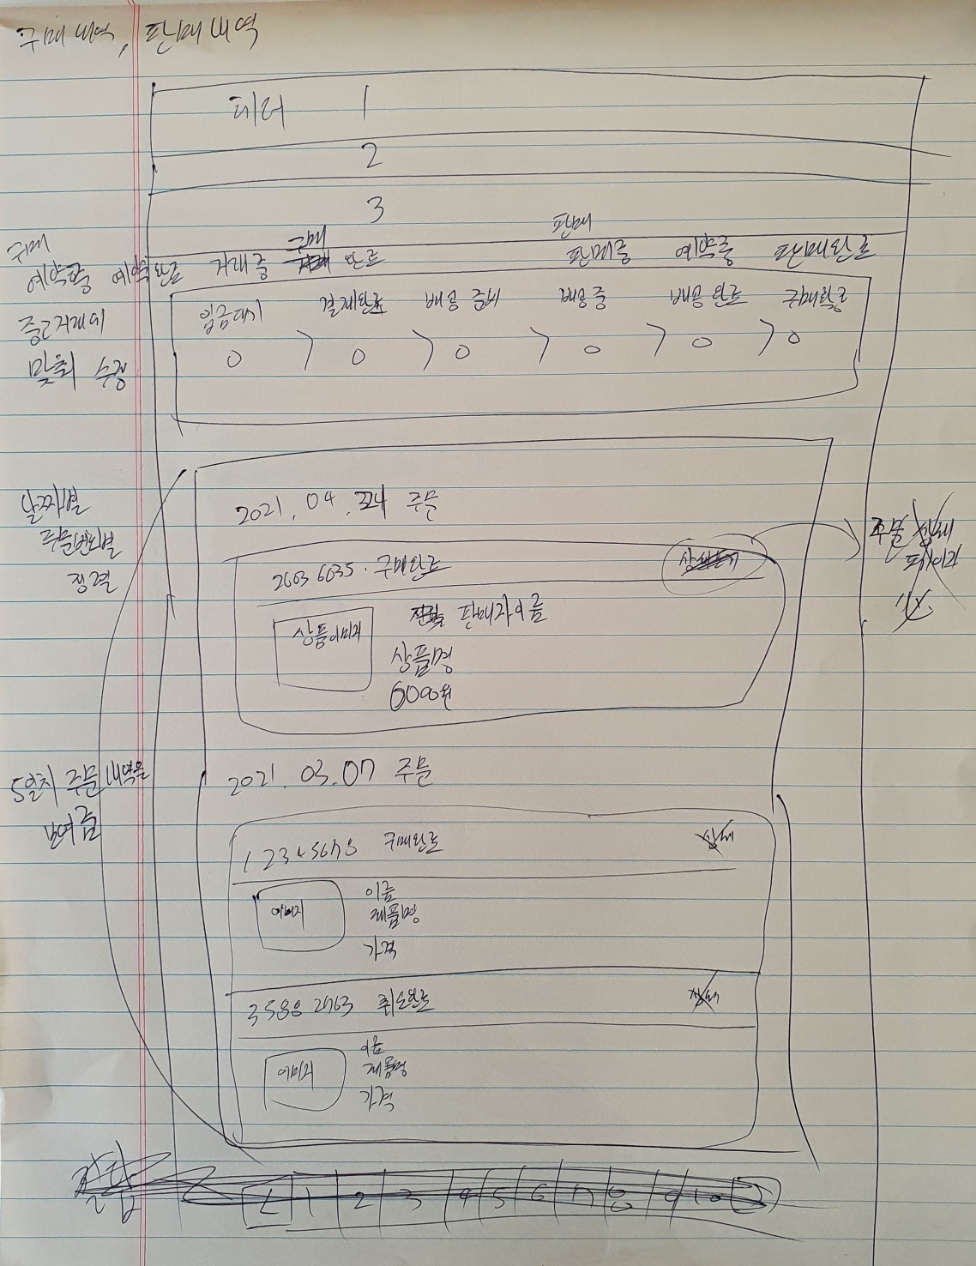 구매내역, 판매내역
헤더 1
2
3
구매
예약중 예약완료 거래중 구매 완료
판매
판매중 예약중 판매완료
중고거래에
맞춰 수정
입금대기 결제완료 배송 준비 배송중 배송완료 구매확정
0 > 0 > 0 > 0 > 0 > 0
날짜별
주문번호별
정렬
2021.04.24 주문
26036035. 구매완료
주문 상세
페이지
상품이미지
판매자이름
상품명
6000원
5일치 주문내역을
보여줌
2021.03.07 주문
12345678 구매완료 상세
이미지
이름
제품명
가격
35882763 취소완료 상세
이미지
이름
제품명
가격
1 2 3 4 5 6 7 8 9 10